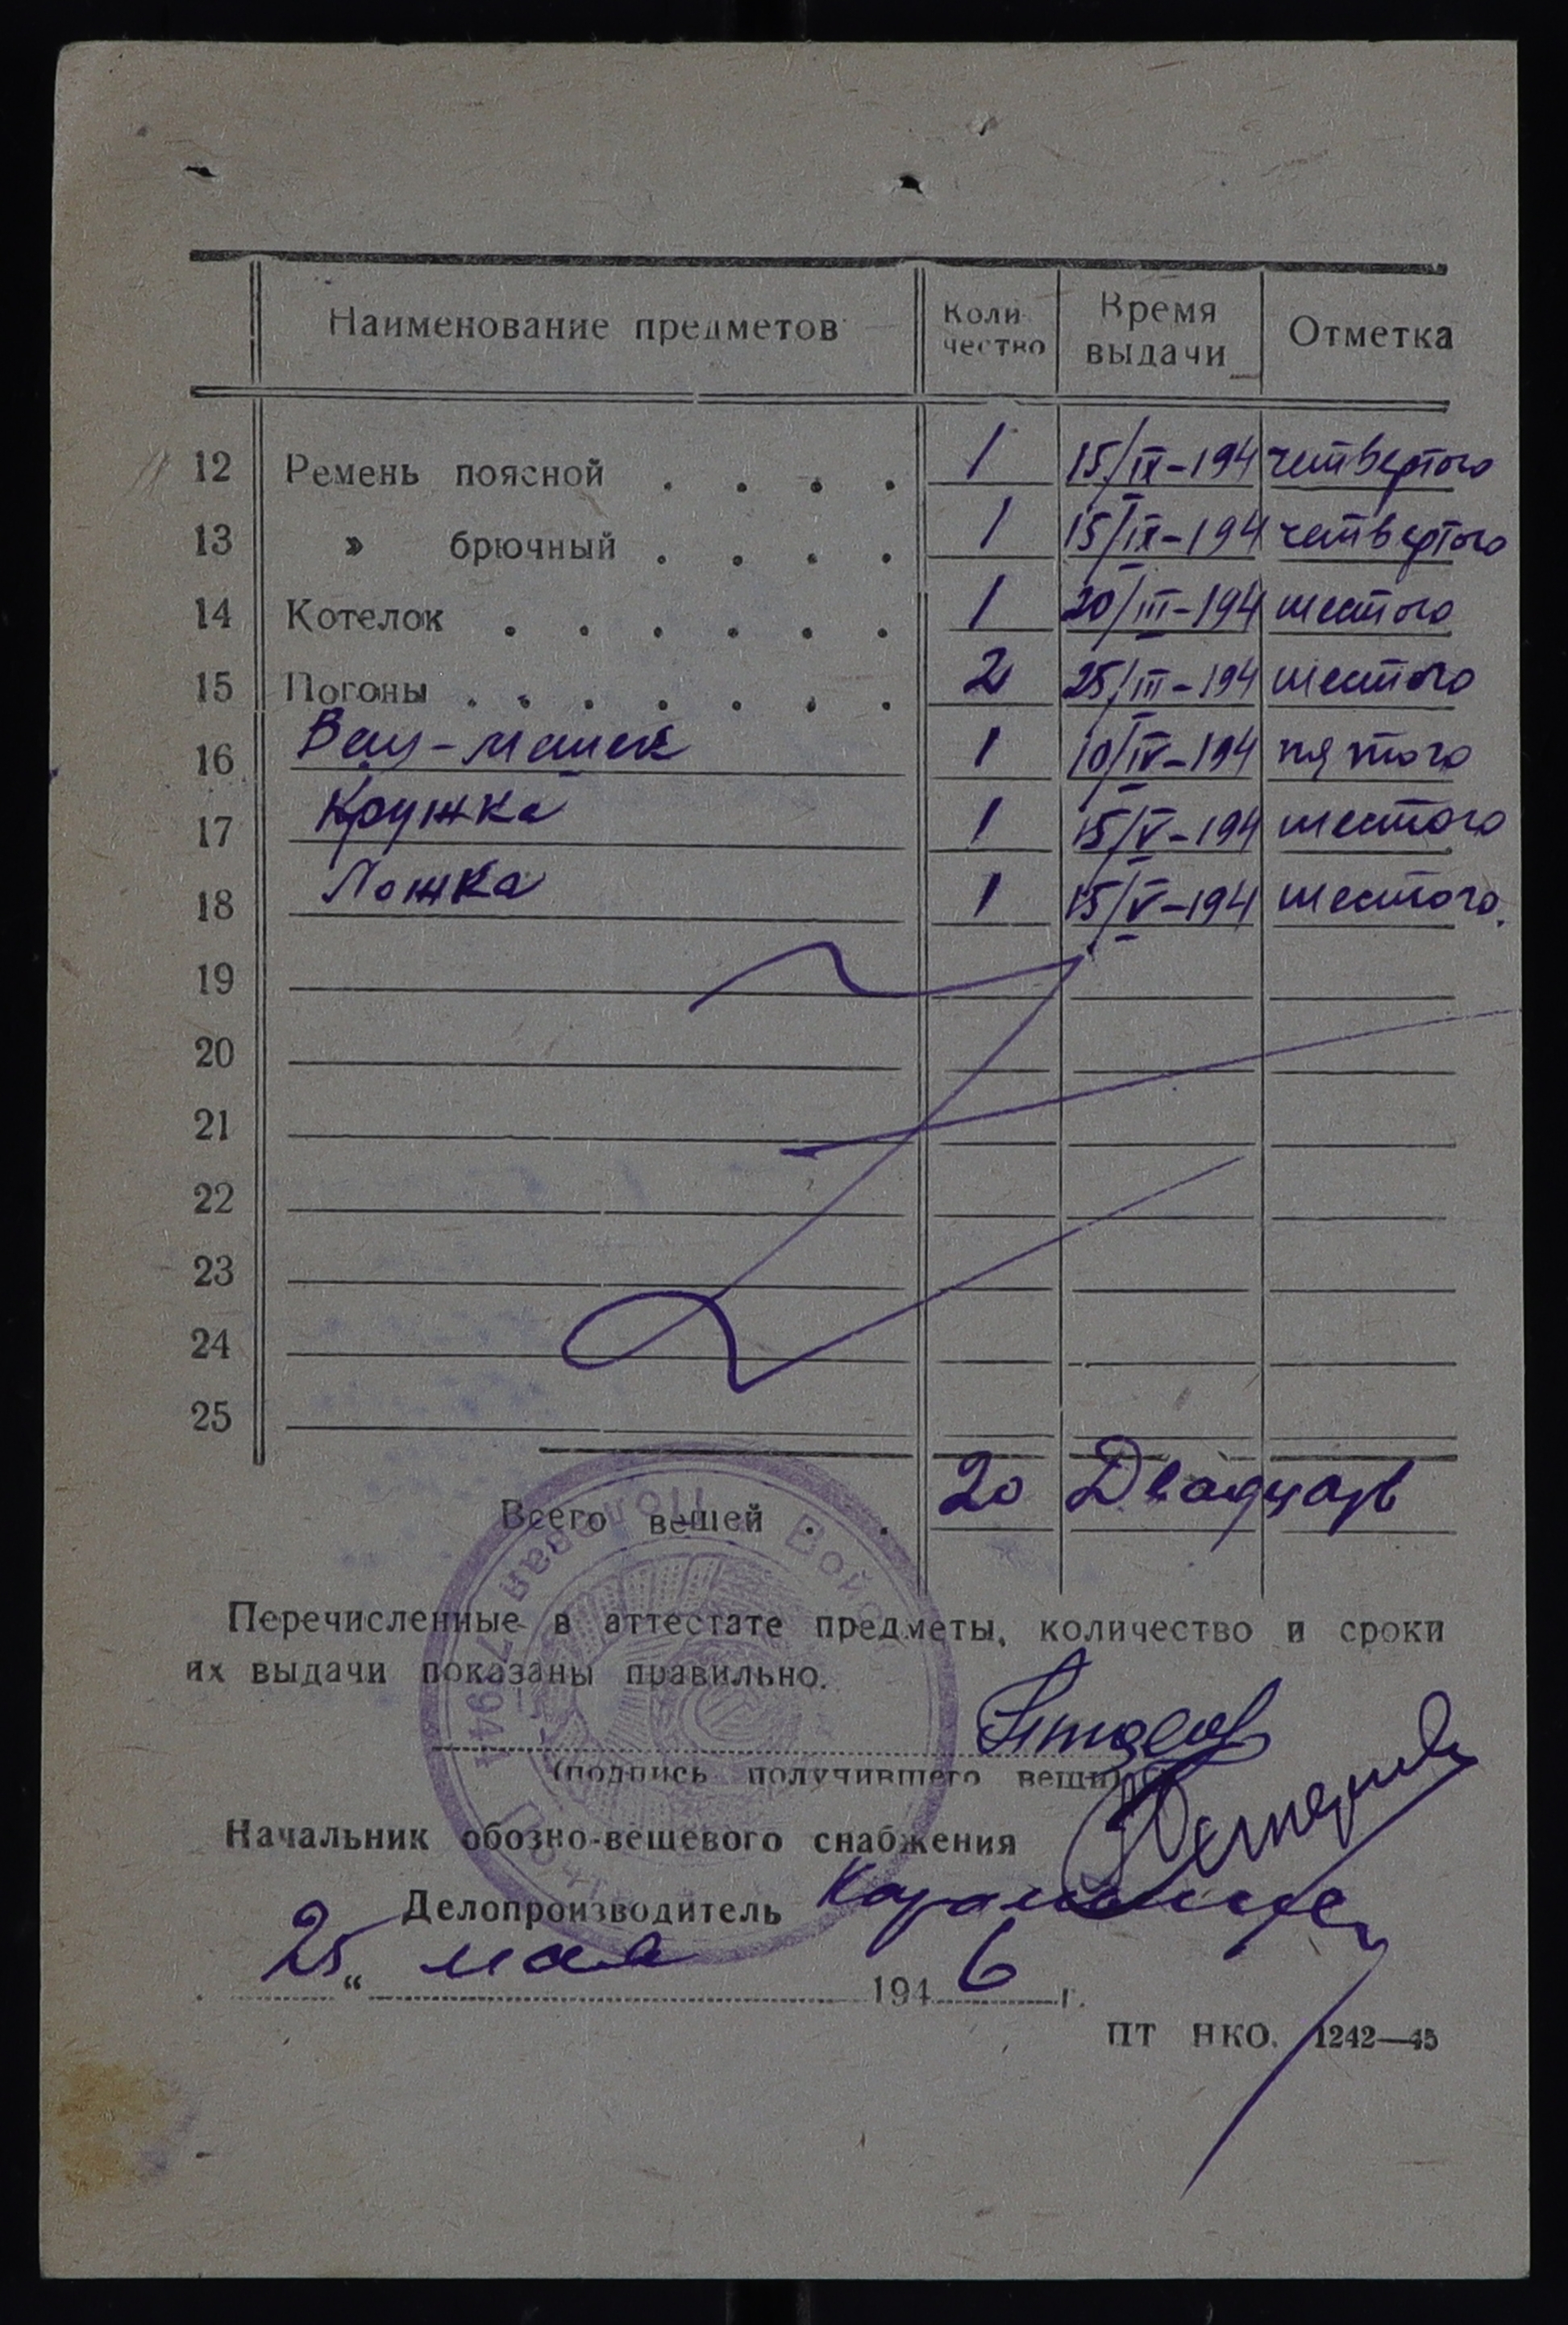 Наименование предметов Количество Время выдачи Отметка
12 Ремень поясной . . . . 1 15/IX-194 четвертого
13 » брючный . . . . 1 15/IX-194 четвертого
14 Котелок . . . . . . 1 20/III-194 шестого
15 Погоны . . . . . . . 2 25/III-194 шестого
16 Вещ-мешек 1 10/IV-194 пятого
17 Кружка 1 15/V-194 шестого
18 Ложка 1 15/V-194 шестого.
19
20
21
22
23
24
25
Всего вещей . . 20 Двадцать
Перечисленные в аттестате предметы, количество и сроки
их выдачи показаны правильно.
(подпись получившего вещи)
Начальник обозно-вещевого снабжения
Делопроизводитель
25 " мая 1946 г.
ПТ НКО. 1242—45
Войск Полевая Почта